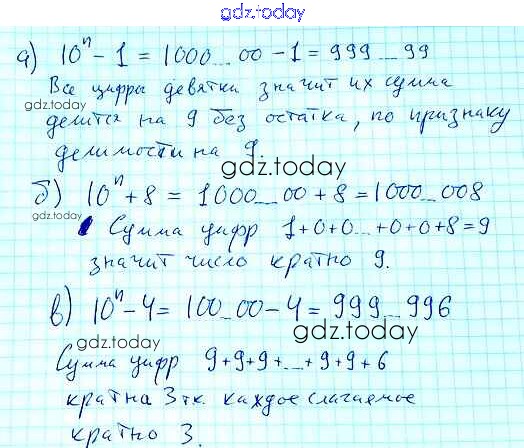 gdz.today
а) 10ⁿ - 1 = 1000...00 - 1 = 999...99
Все цифры девятки значит их сумма
gdz.today
делится на 9 без остатка, по признаку
делимости на 9.
gdz.today
б) 10ⁿ + 8 = 1000...00 + 8 = 1000...008
gdz.today
Сумма цифр 1+0+0...+0+0+8=9
значит число кратно 9.
в) 10ⁿ - 4 = 100...00 - 4 = 999...996
gdz.today
gdz.today
Сумма цифр 9+9+9+...+9+9+6
кратна 3 т.к. каждое слагаемое
кратно 3.
gdz.today